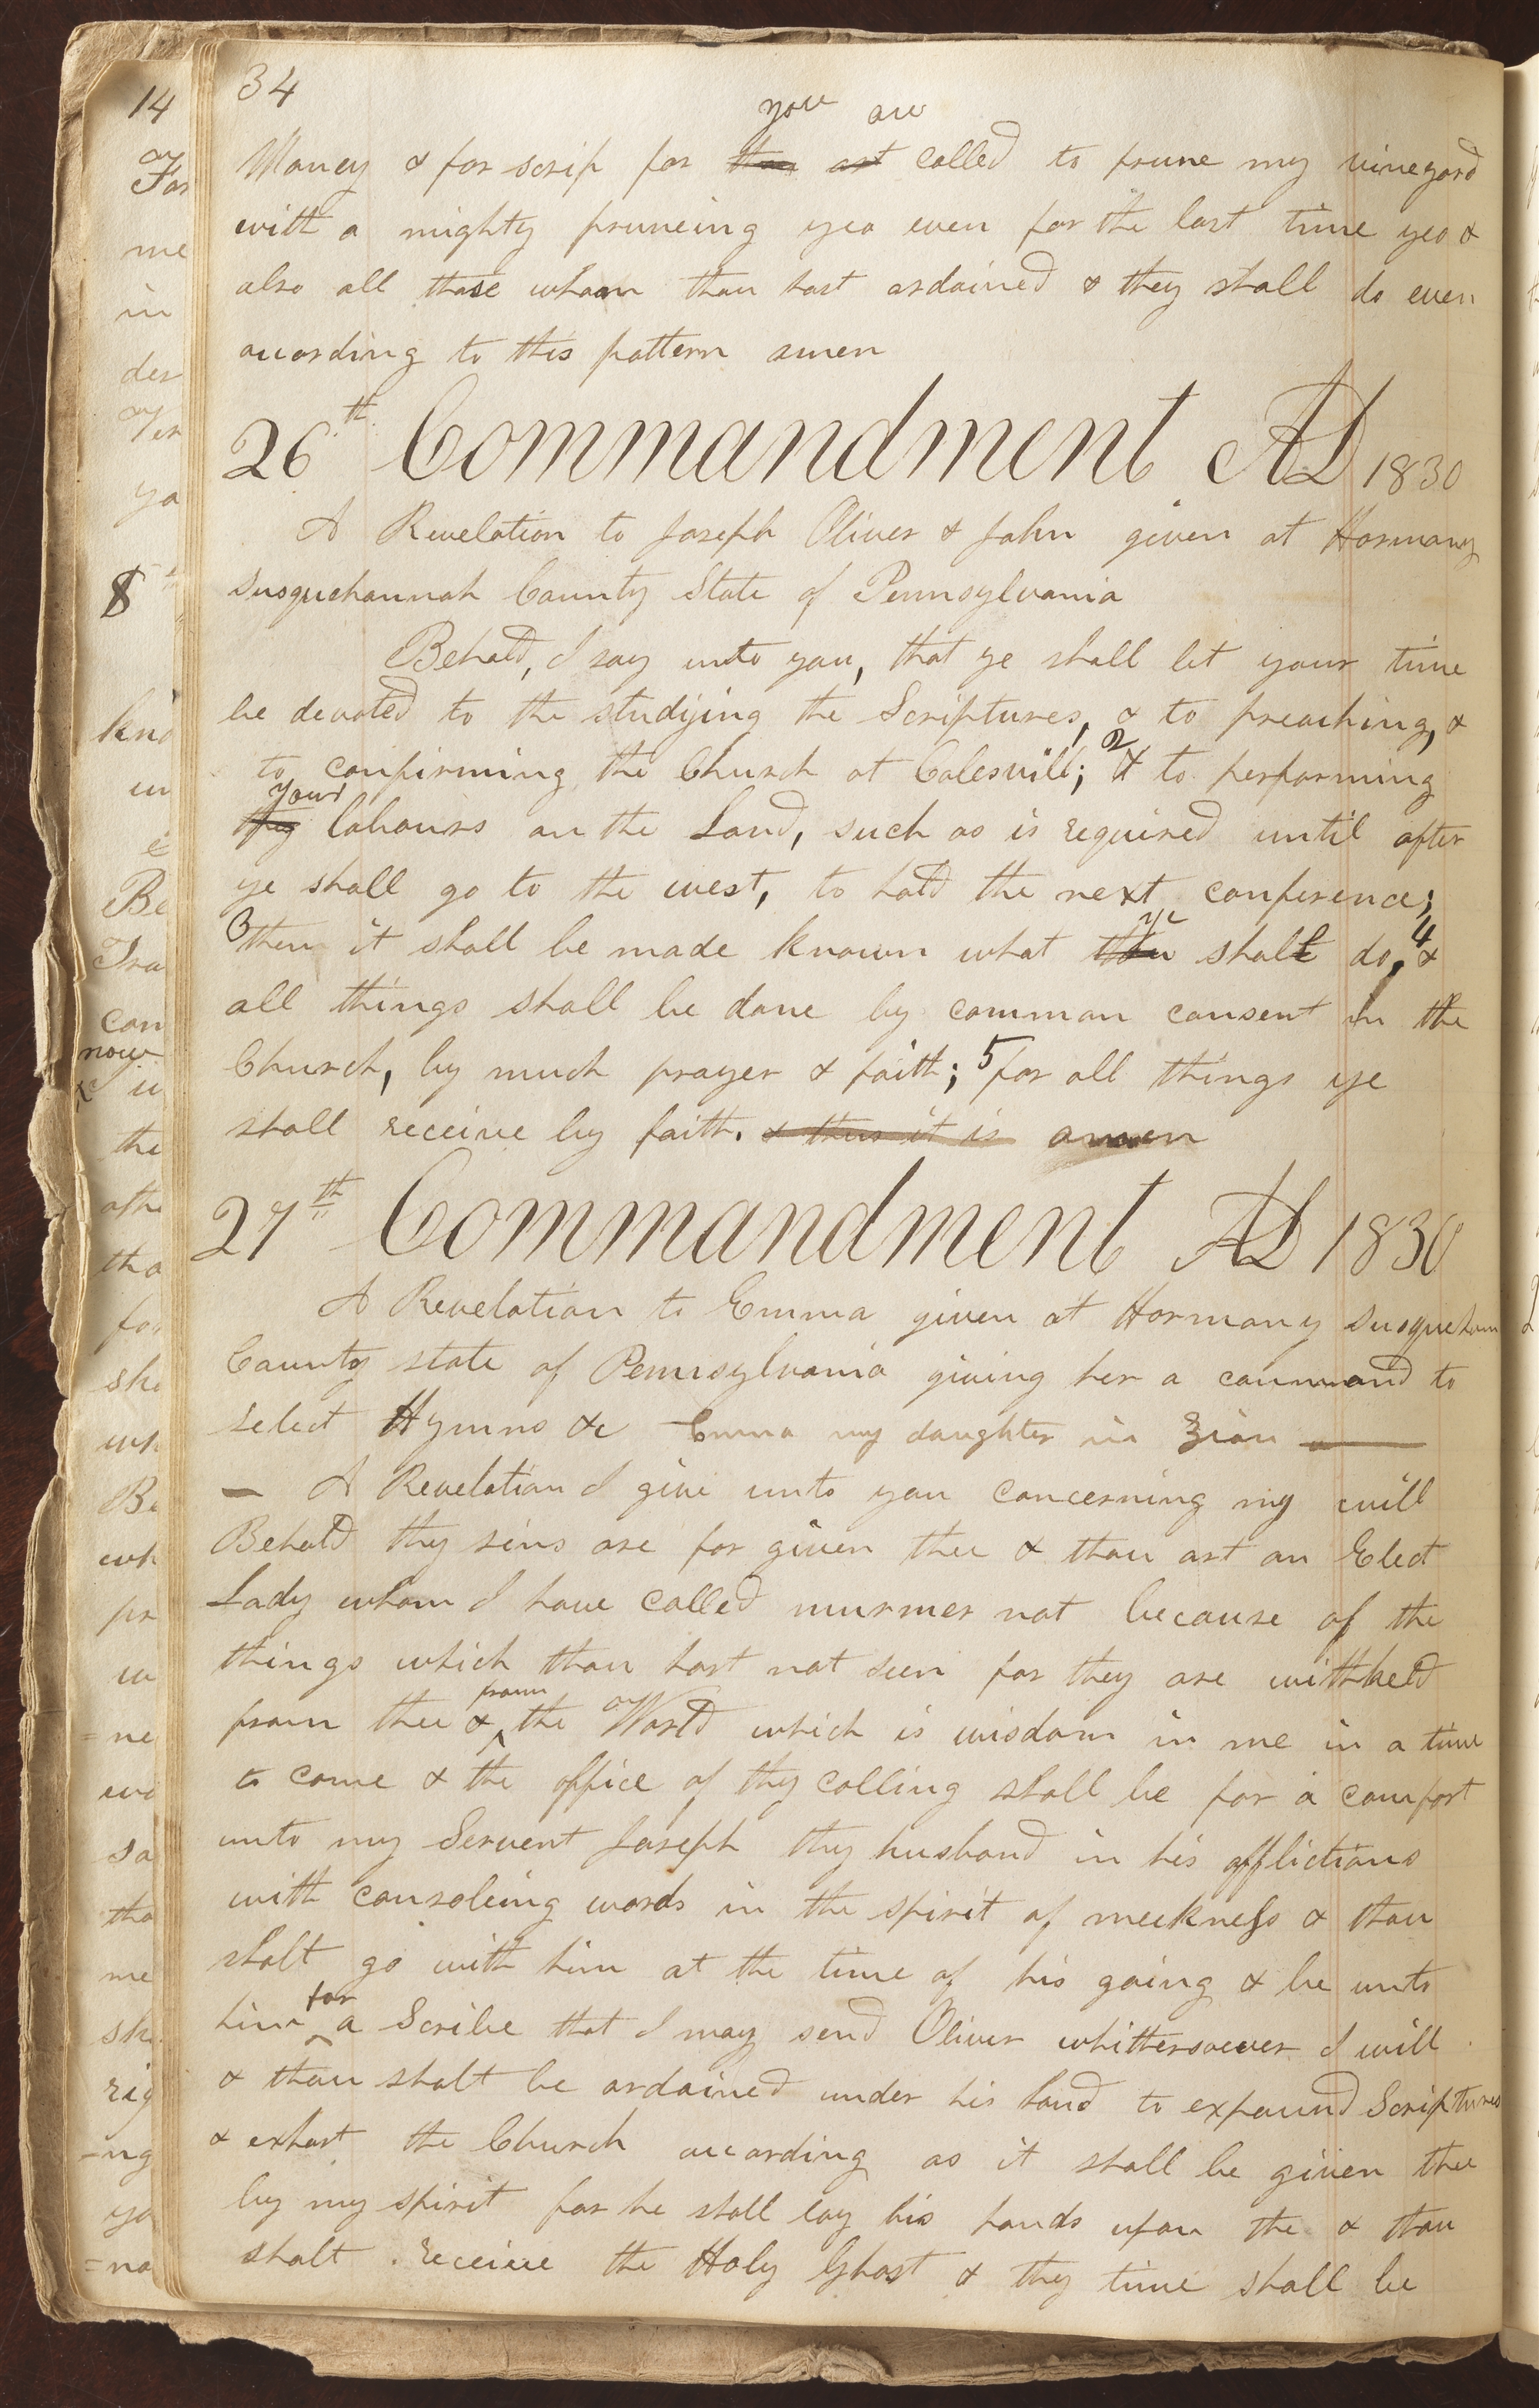 34
you are
Money & for scrip for thou art called to prune my vineyard
with a mighty pruneing yea even for the last time yea &
also all those whom thou hast ordained & they shall do even
according to this pattern amen
26th Commandment AD 1830
A Revelation to Joseph Oliver & John given at Harmony
Susquehannah County State of Pennsylvania
Behold, I say unto you, that ye shall let your time
be devoted to the studying the Scriptures, & to preaching, &
to confirming the Church at Colesvill; 2 & to performing
your
thy labours on the Land, such as is required until after
ye shall go to the west, to hold the next conference;
3 then it shall be made known what thou ye shalt do, 4 &
all things shall be done by common consent in the
Church, by much prayer & faith; 5 for all things ye
shall receive by faith. & thus it is amen
27th Commandment AD 1830
A Revelation to Emma given at Harmony Susquehan
County state of Pennsylvania giving her a command to
select Hymns &c Emma my daughter in Zion
— A Revelation I give unto you concerning my will
Behold thy sins are for given thee & thou art an Elect
Lady whom I have called murmer not because of the
things which thou hast not seen for they are withheld
from thee & from the World which is wisdom in me in a time
to come & the office of thy calling shall be for a comfort
unto my Servent Joseph thy husband in his afflictions
with consoleing words in the spirit of meekness & thou
shalt go with him at the time of his going & be unto
him for a Scribe that I may send Oliver whithersoever I will
& thou shalt be ordained under his hand to expound Scriptures
& exhort the Church according as it shall be given thee
by my spirit for he shall lay his hands upon the & thou
shalt receive the Holy Ghost & thy time shall be
14
For
me
in
der
Ver
ya
8
kno
un
Be
Tra
con
now
the
othe
tha
for
sho
wh
Be
wh
pr
=ne
sa
tha
me
sha
rig
=ng
ya
=na